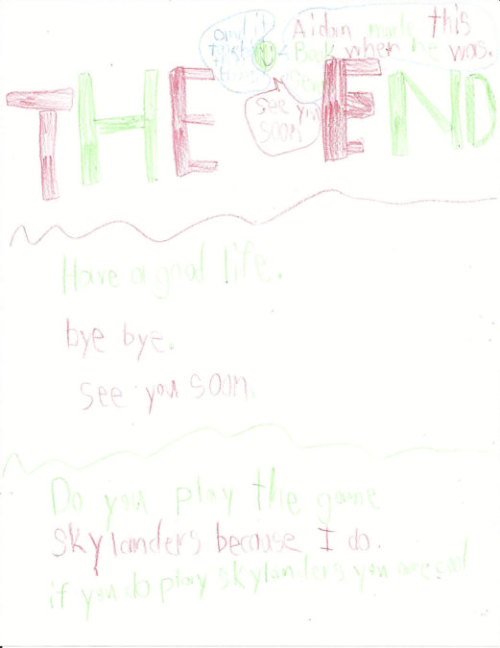 Aidan made this
Back when he was.
and it
THE END
See you
soon
Have a good life.
bye bye.
See you soon.
Do you play the game
skylanders because I do.
if you do play skylanders you are cool